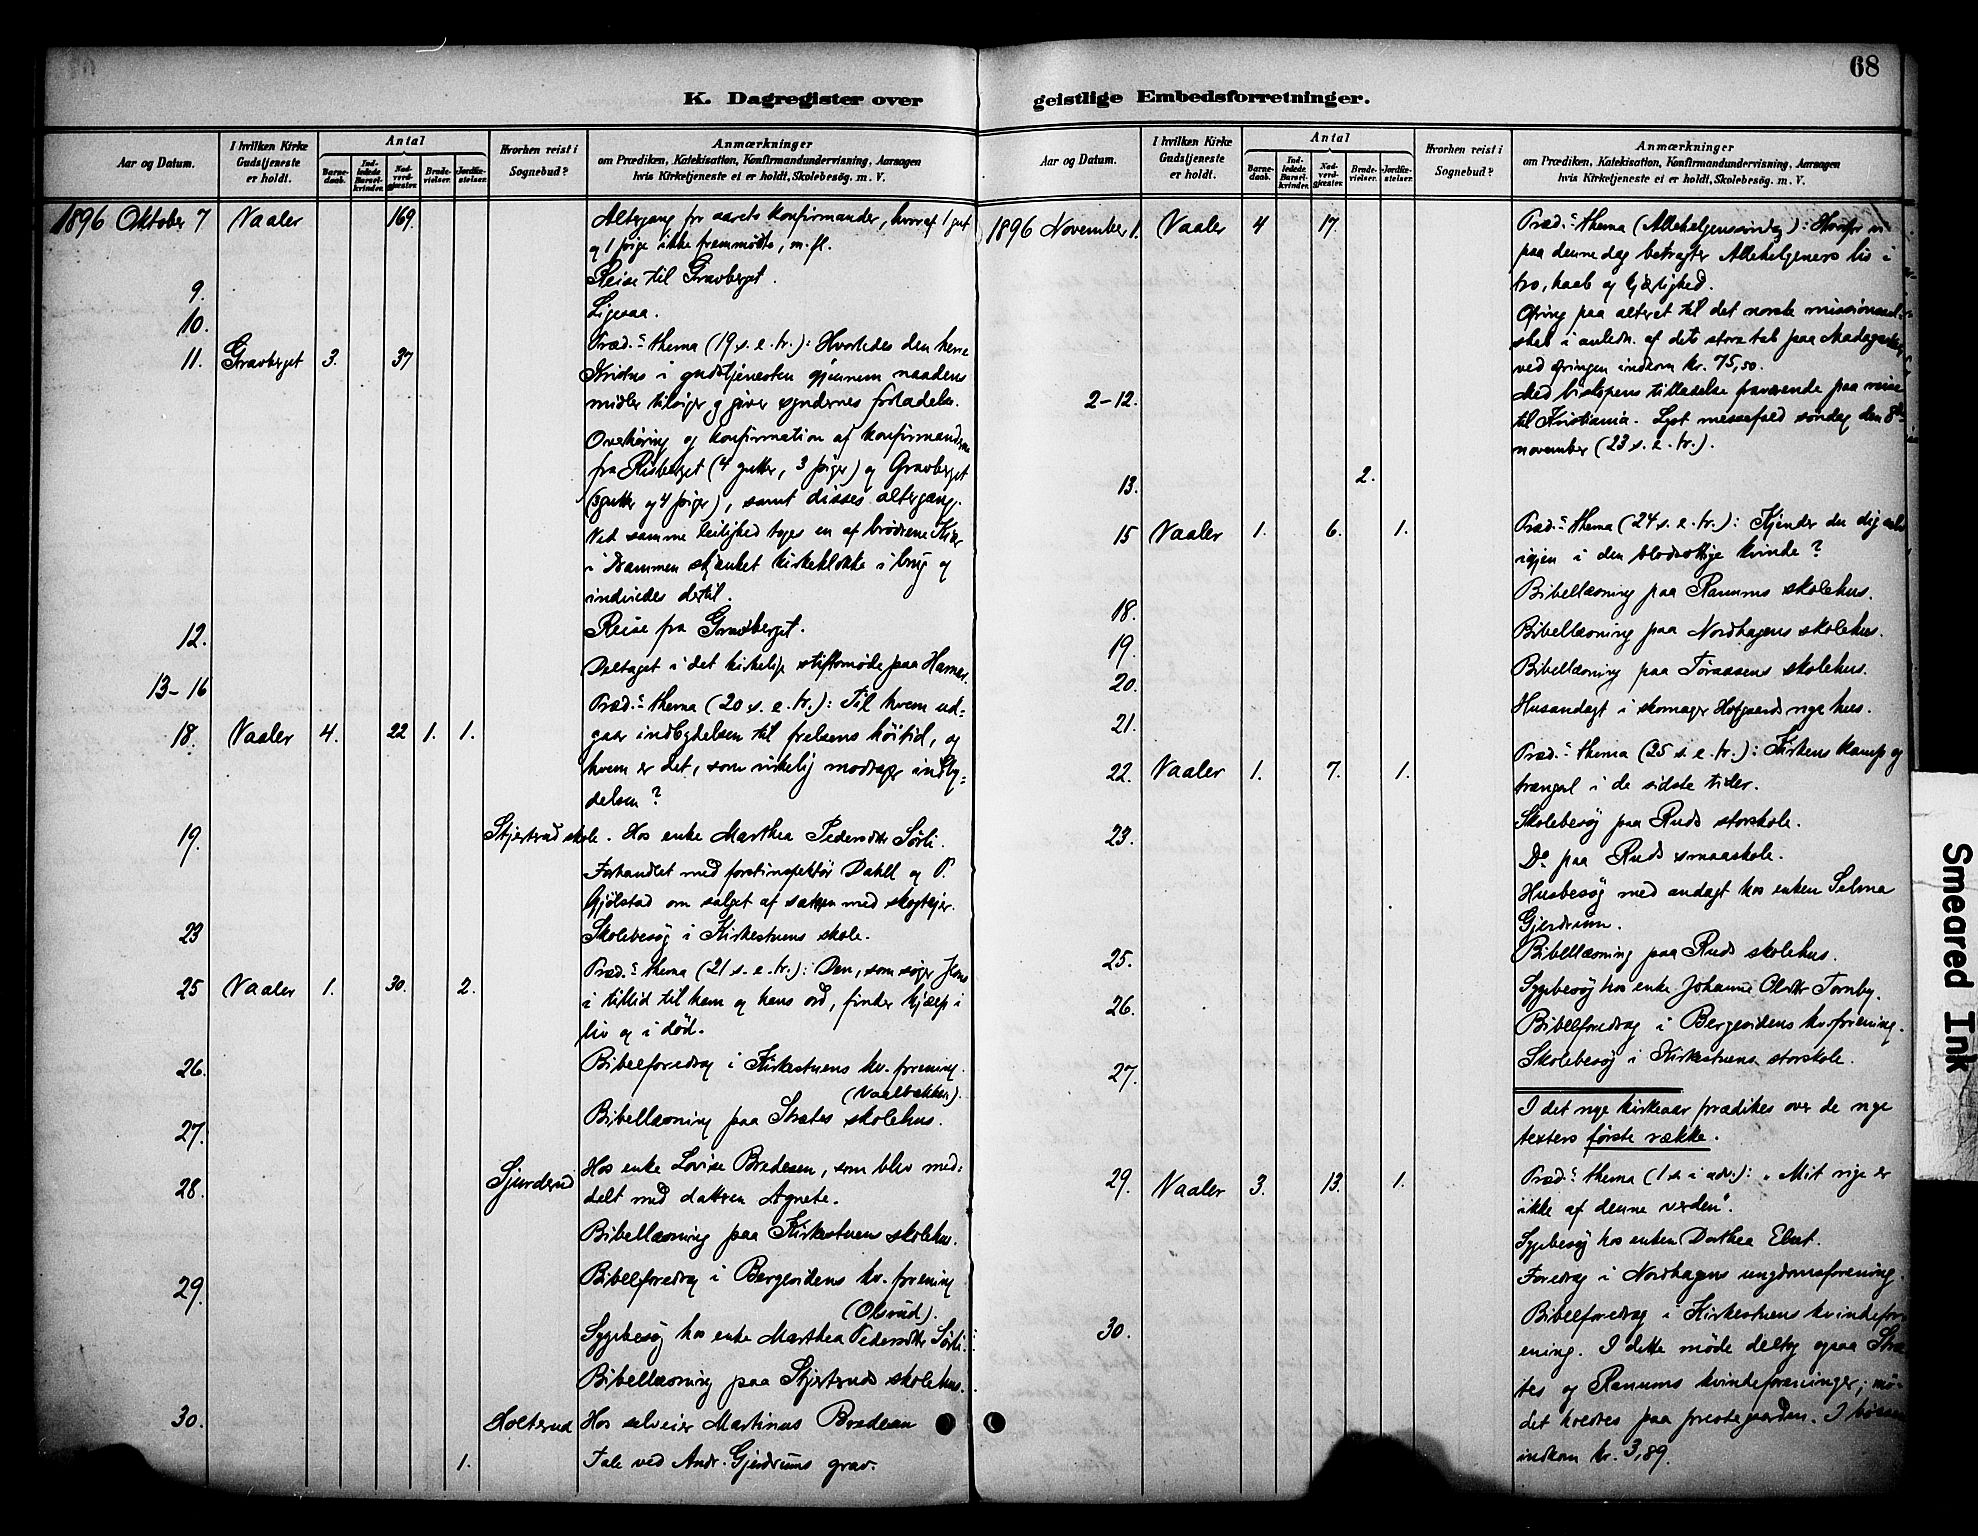 68
K. Dagregister over geistlige Embedsforretninger.
Aar og Datum.
I hvilken Kirke Gudstjeneste er holdt.
Antal
Barne-daab.
Ind-ledede Barsel-kvinder.
Nad-verd-gjæster.
Brude-vielser.
Jordfæ-stelser.
Hvorhen reist i Sognebud?
Anmærkninger
om Prædiken, Katekisation, Konfirmandundervisning, Aarsagen
hvis Kirketjeneste ei er holdt, Skolebesøg. m. V.
1896 Oktober 7 Vaaler 169. Altergang for aarets konfirmander, hvoraf 1 gut
og 1 pige ikke fremmødte, m. fl.
9. Reise til Gravberget.
10. Ligesaa.
11. Gravberget 3. 37 Præd.: thema (19 s. e. tr.): Hvorledes den herre
Kristus i gudstjenesten gjennem naadens
midler tilsiger og giver syndernes forladelse.
Overhøring og konfirmation af konfirmanderne
fra Risberget (4 gutter, 3 piger) og Gravberget
(3 gutter og 4 piger), samt disses altergang.
Ved samme leilighed toges en af brødrene Kiær
i Drammen skjænket kirkeklokke i brug og
indviedes dertil.
12. Reise fra Gravberget.
13-16 Deltaget i det kirkelige stiftsmøde paa Hamar.
18. Vaaler 4. 22 1. 1. Præd.: thema (20 s. e. tr.): Til hvem ud=
gaar indbydelsen til frelsens høitid, og
hvem er det, som virkelig modtager indby=
delsen?
19. Stjertrud skole. Hos enke Marthea Pedersdtr Sørli.
Forhandlet med forstinspektør Dahll og P.
Gjølstad om salget af sætren med skogteier.
23 Skolebesøg i Kirkestuens skole.
25 Vaaler 1. 30. 2. Præd.: thema (21 s. e. tr.): Den, som søger Jesus
i tillid til ham og hans ord, finder hjælp i
liv og i død.
26. Bibelforedrag i Kirkestuens kv. forening
(Vaalbakken).
27. Bibellæsning paa Strætes skolehus.
28. Sjurderud Hos enke Lovise Bredesen, som blev med=
delt med datteren Agnete.
Bibellæsning paa Kirkestuens skolehus.
29. Bibelforedrag i Bergesidens kv. forening
(Olsrud).
Sygebesøg hos enke Marthea Pedersdtr Sørli.
Bibellæsning paa Stjertruds skolehus.
30. Holterud Hos selveier Martinus Bredesen
1. Tale ved Andr. Gjerdrums grav.
Aar og Datum.
I hvilken Kirke Gudstjeneste er holdt.
Antal
Barne-daab.
Ind-ledede Barsel-kvinder.
Nad-verd-gjæster.
Brude-vielser.
Jordfæ-stelser.
Hvorhen reist i Sognebud?
Anmærkninger
om Prædiken, Katekisation, Konfirmandundervisning, Aarsagen
hvis Kirketjeneste ei er holdt, Skolebesøg. m. V.
1896 November 1. Vaaler 4 17. Præd.: thema (Allehelgenssøndag): Hvorfor vi
paa denne dag betragter Allehelgeners liv i
tro, haab og kjærlighed.
Ofring paa alteret til det norske missionssel-
skab i anledn. af dets store tab paa Madagaskar,
ved ofringen indkom kr. 75,50.
2-12. Med biskopens tilladelse fraværende paa reise
til Kristiania. Lyst messefald søndag den 8de
november (23 s. e. tr.).
13. 2.
15 Vaaler 1. 6. 1. Præd.: thema (24 s. e. tr.): Kjender du dig selv
igjen i den blodsottige kvinde?
18. Bibellæsning paa Ranums skolehus.
19. Bibellæsning paa Nordhagens skolehus.
20. Bibellæsning paa Toraasens skolehus.
21. Husandagt i skomager Hofgaards nye hus.
22. Vaaler 1. 7. 1. Præd.: thema (25 s. e. tr.): Kirkens kamp og
trængsel i de sidste tider.
23. Skolebesøg paa Ruds storskole.
Do paa Ruds smaaskole.
Husbesøg med andagt hos enken Selma
Gjerdrum.
25. Bibellæsning paa Ruds skolehus.
26. Sygebesøg hos enke Johanne Olsdtr Tornby.
Bibelforedrag i Bergesidens kv. forening.
27. Skolebesøg i Kirkestuens storskole.
I det nye kirkeaar prædikes over de nye
texters første række.
29. Vaaler 3. 13. 1. Præd.: thema (1 s. i adv.): „Mit rige er
ikke af denne verden".
Sygebesøg hos enken Dorthea Ebert.
Foredrag i Nordhagens ungdomsforening.
30. Bibelforedrag i Kirkestuens kvindefor-
ening. I dette møde deltog ogsaa Stræ-
tes og Ranums kvindeforeninger; mø-
det holdtes paa prestegaarden. I bøssen
indkom kr. 3,89.
Smeared Ink